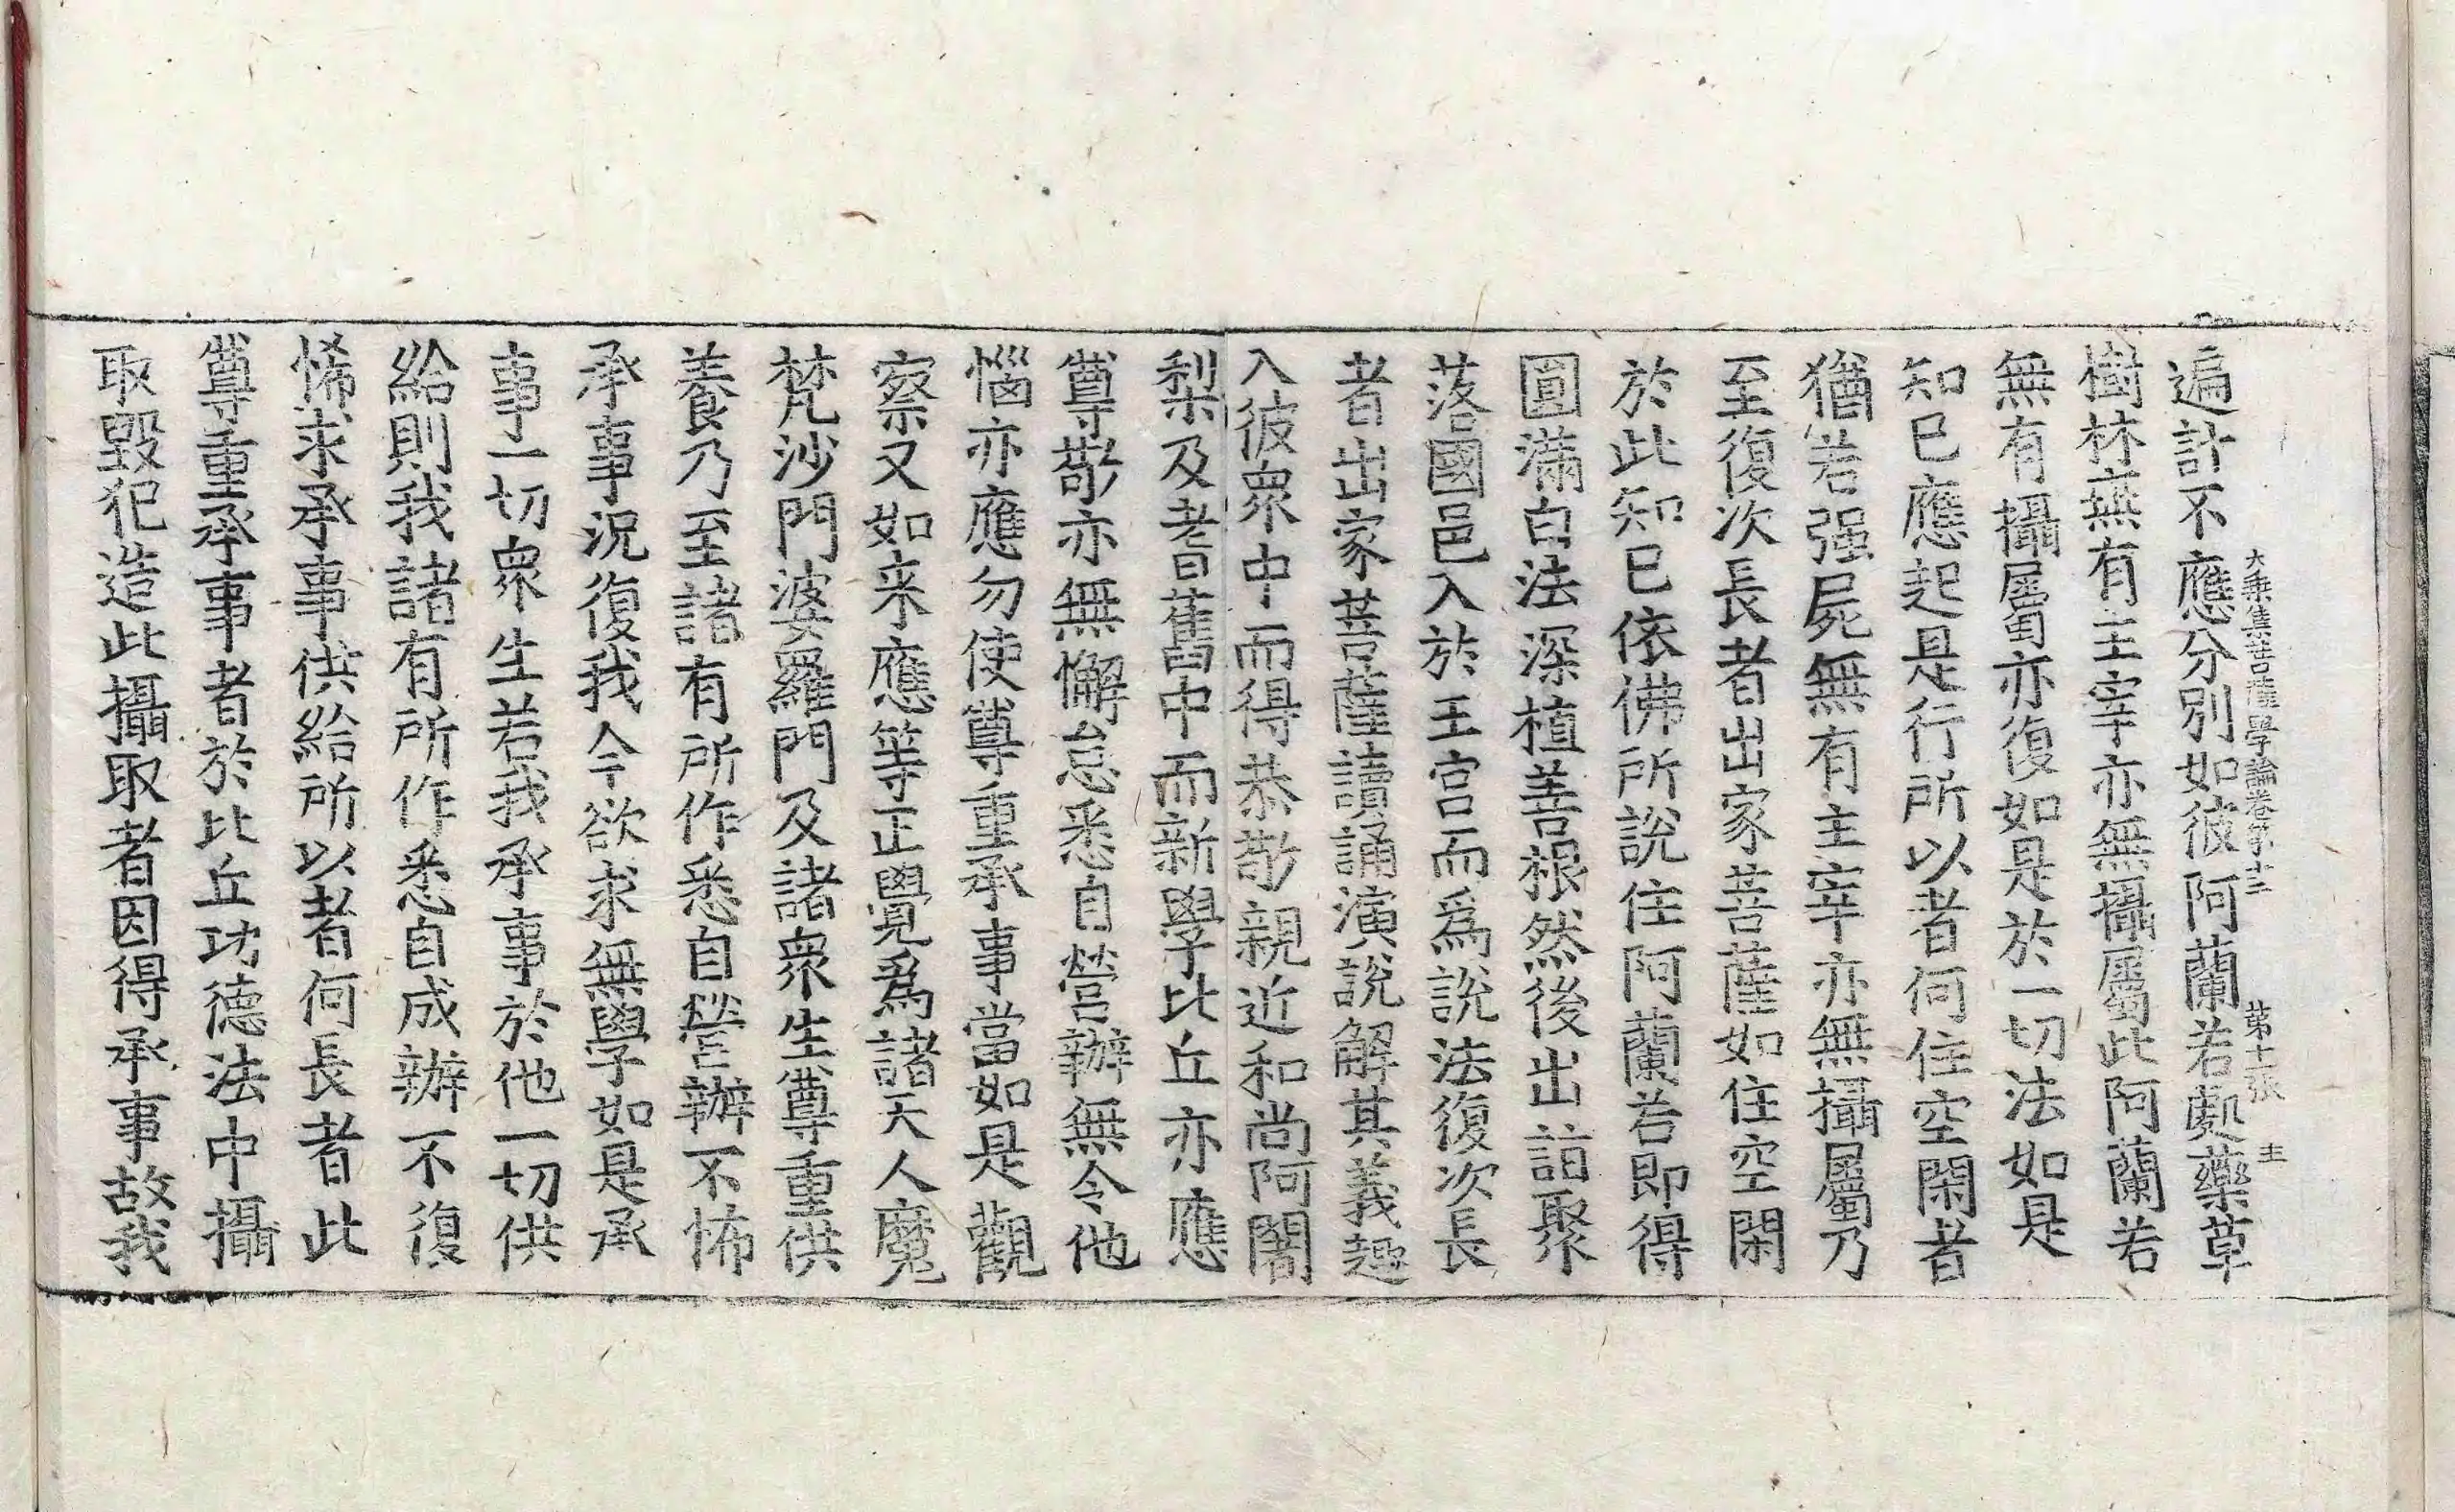 遍計不應分別如彼阿蘭若處藥草
大乘集菩薩學論卷第十三 第十一張 主
樹林無有主宰亦無攝屬此阿蘭若
無有攝屬亦復如是於一切法如是
知已應起是行所以者何住空閑者
猶若强屍無有主宰亦無攝屬乃
至復次長者出家菩薩如住空閑
於此知已依佛所說住阿蘭若即得
圓滿白法深植善根然後出詣聚
落國邑入於王宮而爲說法復次長
者出家菩薩讀誦演說解其義趣
入彼衆中而得恭敬親近和尚阿闍
梨及耆舊中而新學比丘亦應
尊敬亦無懈怠悉自營辦無令他
惱亦應勿使尊重承事當如是觀
察又如来應等正覺爲諸天人魔
梵沙門婆羅門及諸衆生尊重供
養乃至諸有所作悉自營辦不怖
承事況復我今欲求無學如是承
事一切衆生若我承事於他一切供
給則我諸有所作悉自成辦不復
悕求承事供給所以者何長者此
尊重承事者於比丘功德法中攝
取毀犯造此攝取者因得承事故我